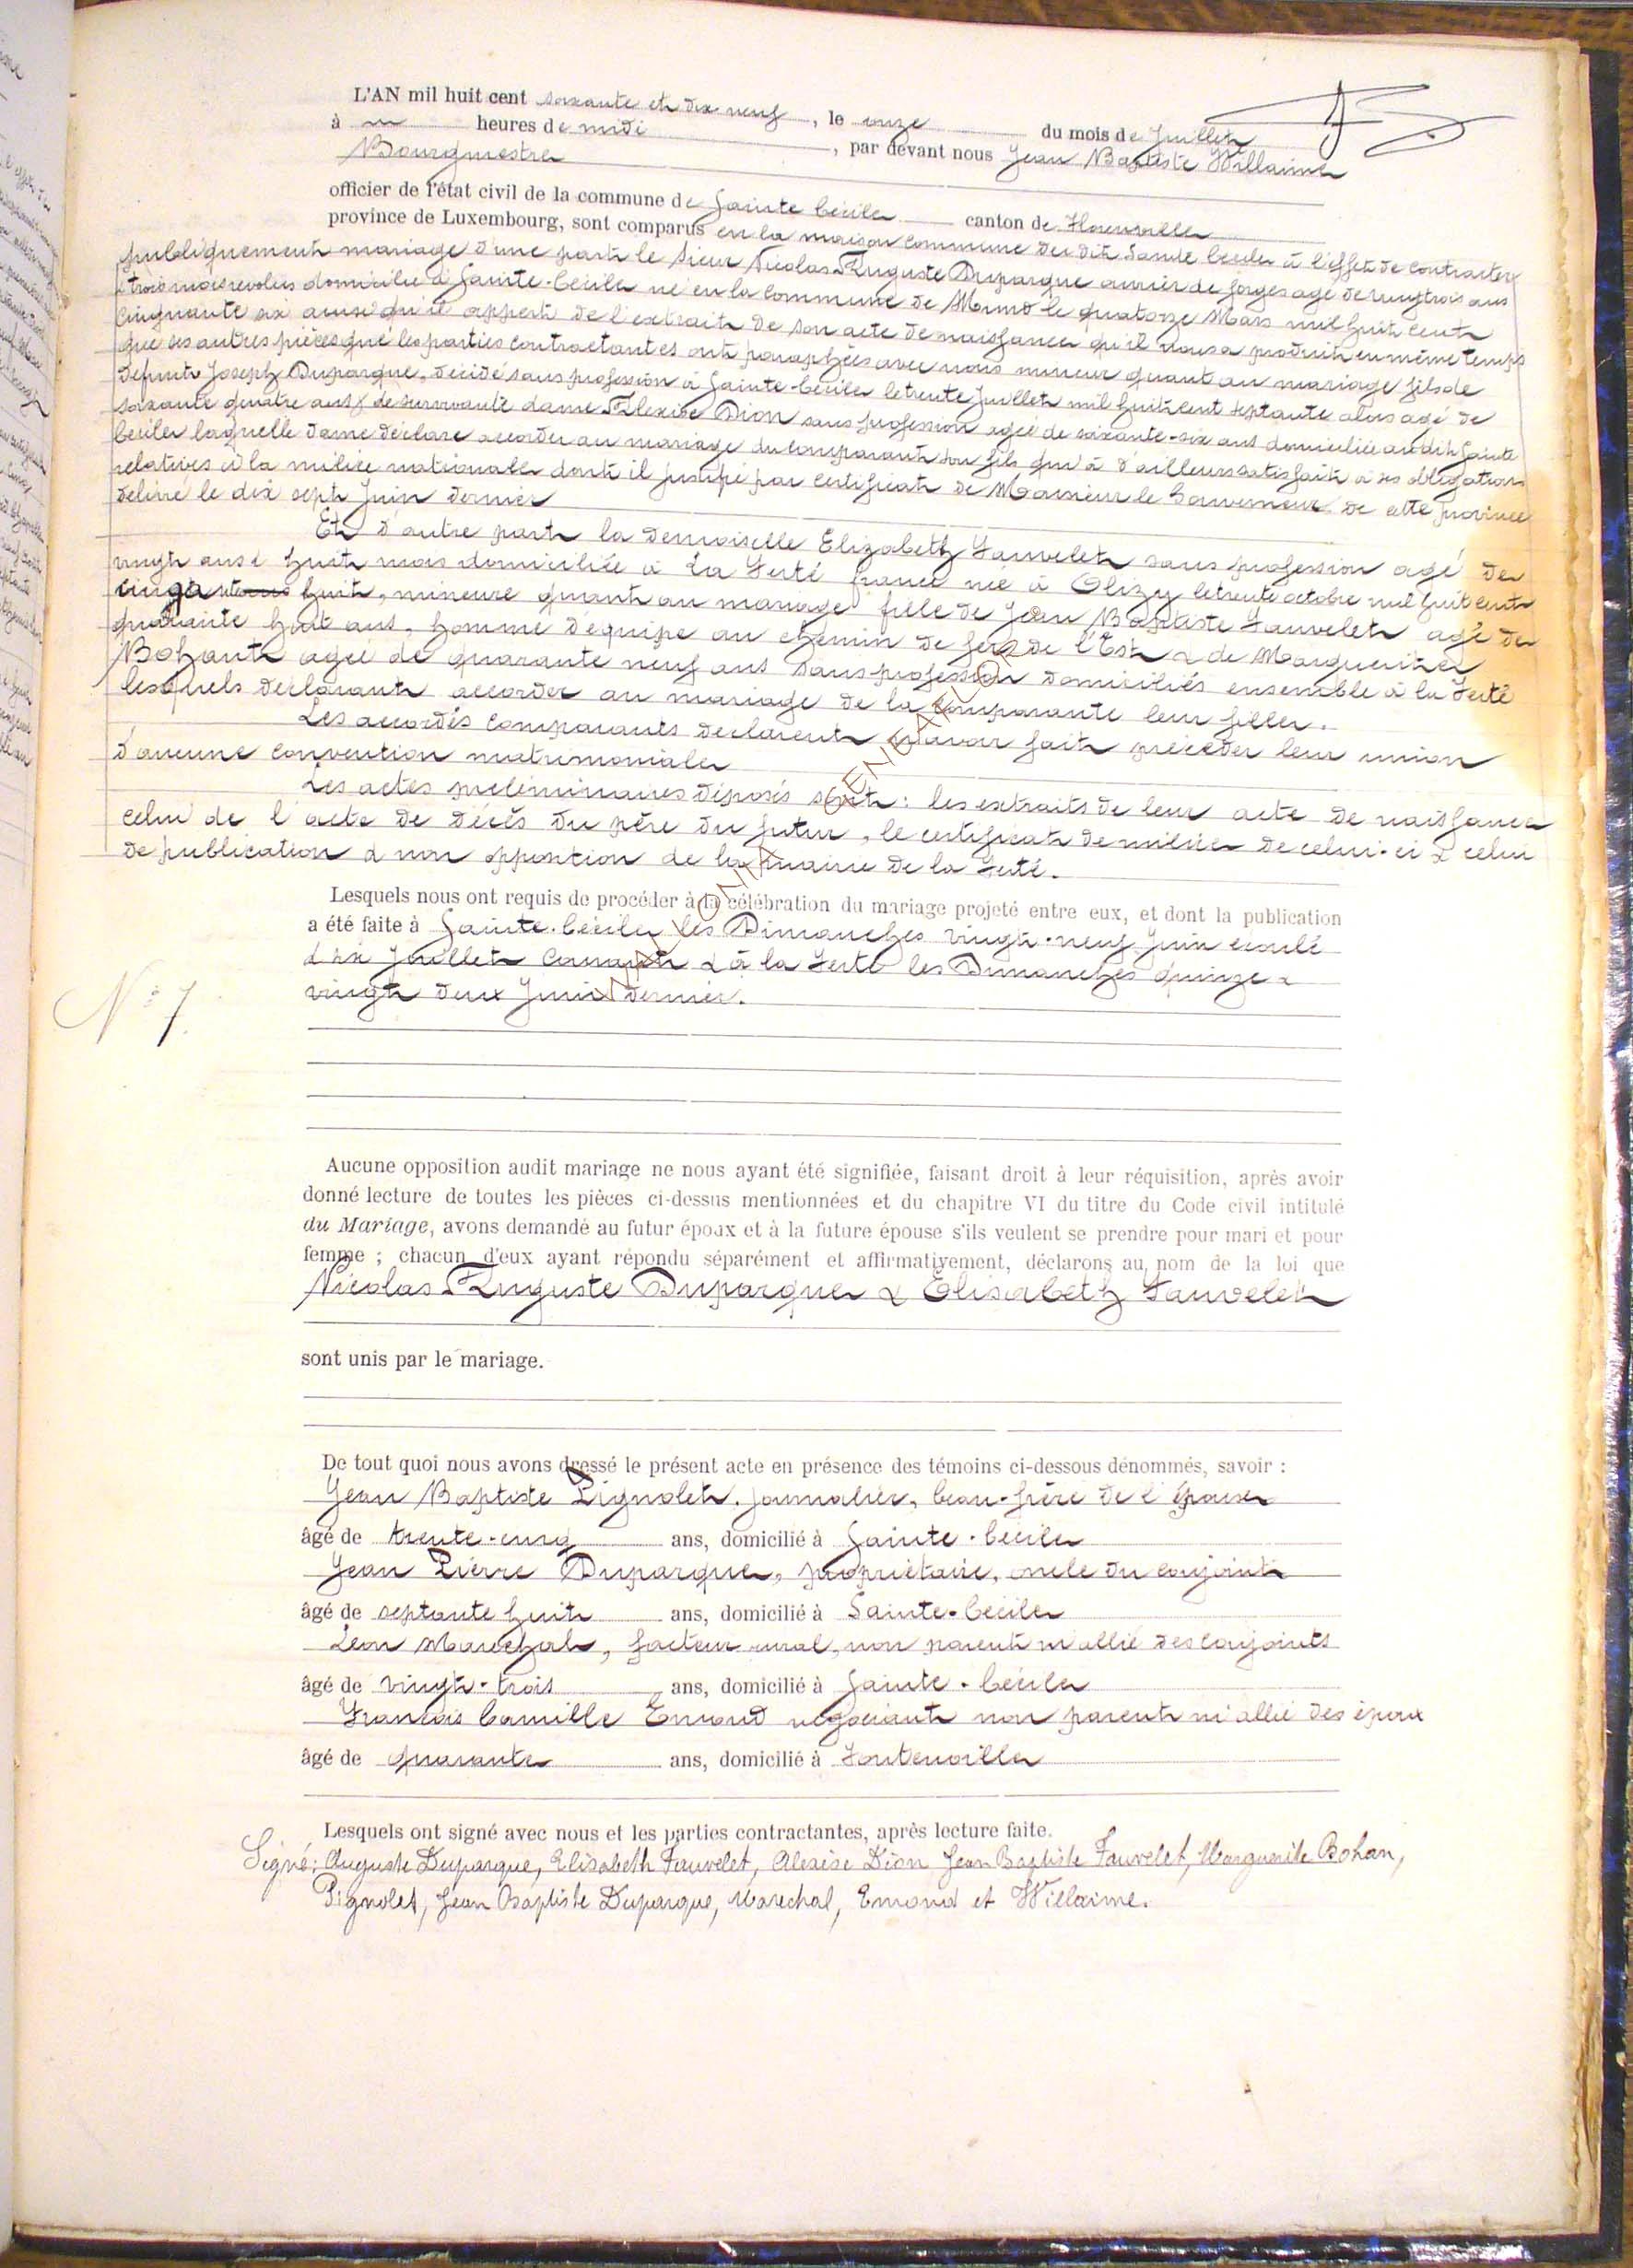 L'AN mil huit cent soixante et dix neuf, le onze du mois de Juillet
à heures de midi, par devant nous Jean Baptiste Willaime
Bourgmestre
officier de l'état civil de la commune de Sainte Cécile canton de Florenville
province de Luxembourg, sont comparus en la maison commune du dit Sainte Cécile à l'effet de contracter
publiquement mariage d'une part le sieur Nicolas Auguste Duparque ouvrier de forges agé de vingt trois ans
trois mois revolus domicilié à Sainte-Cécile né en la commune de Muno le quatorze Mars mil huit cent
cinquante six ainsi qu'il appert de l'extrait de son acte de naissance qu'il nous a produit en même temps
que ses autres pièces que les parties contractantes ont paraphées avec nous mineur quant au mariage fils de
defunt Joseph Duparque, décédé sans profession à Sainte-Cécile le trente Juillet mil huit cent septante alors agé de
soixante quatre ans & de survivante dame Alexise Dion sans profession agée de soixante-six ans domiciliée au dit Sainte
Cécile laquelle dame déclare accorder au mariage du comparant son fils qui a d'ailleurs satisfait à ses obligations
relatives à la milice nationale dont il justifie par certificat de Monsieur le Gouverneur de cette province
délivré le dix sept Juin dernier
Et d'autre part la demoiselle Elizabeth Fauvelet sans profession agé de
vingt ans & huit mois domiciliée à La Ferté france née à Olizy le trente octobre mil huit cent
cinquante huit, mineure quant au mariage fille de Jean Baptiste Fauvelet agé de
quarante huit ans, homme d'equipe au chemin de fer de l'Est & de Marguerite
Bohant agée de quarante neuf ans sans profession domiciliés ensemble à la Ferté
lesquels declarant accorder au mariage de la comparante leur fille.
Les accordés comparants declarent n'avoir fait précéder leur union
d'aucune convention matrimoniale
Les actes preliminaires déposés sont: les extraits de leur acte de naissance
celui de l'acte de décès du père du futur, le certificat de milice de celui-ci & celui
de publication & non opposition de la mairie de la Ferté.
Lesquels nous ont requis de procéder à la célébration du mariage projeté entre eux, et dont la publication
a été faite à Sainte-Cécile les Dimanches vingt-neuf Juin écoulé
& six Juillet Courant & à la Ferté les Dimanches quinze &
vingt deux Juin dernier.
N° 7.
Aucune opposition audit mariage ne nous ayant été signifiée, faisant droit à leur réquisition, après avoir
donné lecture de toutes les pièces ci-dessus mentionnées et du chapitre VI du titre du Code civil intitulé
du Mariage, avons demandé au futur époux et à la future épouse s'ils veulent se prendre pour mari et pour
femme ; chacun d'eux ayant répondu séparément et affirmativement, déclarons au nom de la loi que
Nicolas Auguste Duparque & Elisabeth Fauvelet
sont unis par le mariage.
De tout quoi nous avons dressé le présent acte en présence des témoins ci-dessous dénommés, savoir :
Jean Baptiste Pignolet, journalier, beau-frère de l'épouse
âgé de trente-cinq ans, domicilié à Sainte-Cécile
Jean Pierre Duparque, propriétaire, oncle du conjoint
âgé de septante huit ans, domicilié à Sainte-Cécile
Léon Marechal, facteur rural, non parent ni allié des conjoints
âgé de vingt-trois ans, domicilié à Sainte-Cécile
François Camille Emond négociant non parent ni allié des époux
âgé de quarante ans, domicilié à Fontenoille
Lesquels ont signé avec nous et les parties contractantes, après lecture faite.
Signé: Auguste Duparque, Elisabeth Fauvelet, Alexise Dion Jean Baptiste Fauvelet, Marguerite Bohan,
Pignolet, Jean Baptiste Duparque, Marechal, Emond et Willaime.